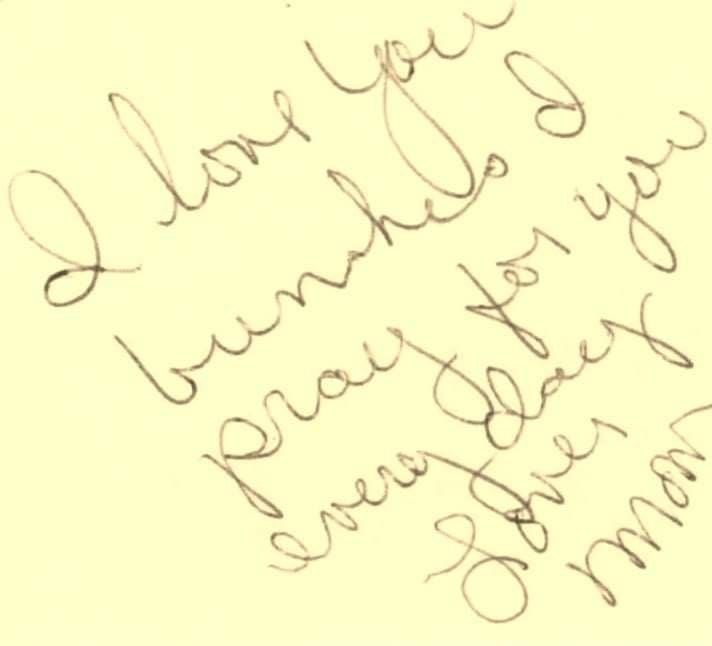 I love you
bunches I
pray for you
every day
Love,
mom